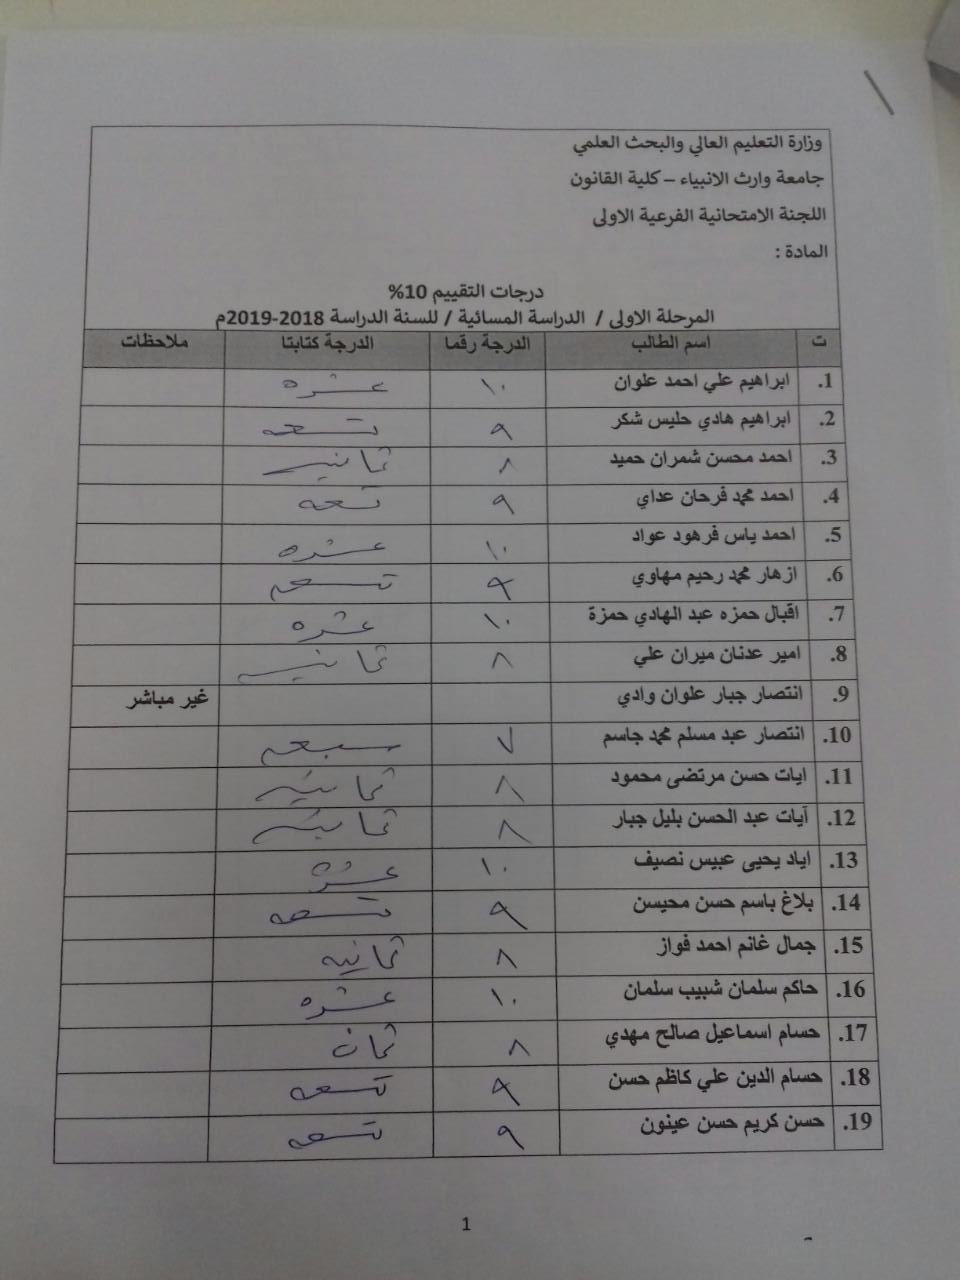 وزارة التعليم العالي والبحث العلمي
جامعة وارث الانبياء – كلية القانون
اللجنة الامتحانية الفرعية الاولى
المادة :
درجات التقييم 10%
المرحلة الاولى / الدراسة المسائية / للسنة الدراسة 2018-2019م
ت اسم الطالب الدرجة رقما الدرجة كتابتا ملاحظات
1. ابراهيم علي احمد علوان ١٠ عشره
2. ابراهيم هادي حليس شكر ٩ تسعه
3. احمد محسن شمران حميد ٨ ثمانيه
4. احمد محمد فرحان عداي ٩ تسعه
5. احمد ياس فرهود عواد ١٠ عشره
6. ازهار محمد رحيم مهاوي ٩ تسعه
7. اقبال حمزه عبد الهادي حمزة ١٠ عشره
8. امير عدنان ميران علي ٨ ثمانيه
9. انتصار جبار علوان وادي غير مباشر
10. انتصار عبد مسلم محمد جاسم ٧ سبعه
11. ايات حسن مرتضى محمود ٨ ثمانيه
12. آيات عبد الحسن بليل جبار ٨ ثمانيه
13. اياد يحيى عبيس نصيف ١٠ عشره
14. بلاغ باسم حسن محيسن ٩ تسعه
15. جمال غانم احمد فواز ٨ ثمانيه
16. حاكم سلمان شبيب سلمان ١٠ عشره
17. حسام اسماعيل صالح مهدي ٨ ثمان
18. حسام الدين علي كاظم حسن ٩ تسعه
19. حسن كريم حسن عينون ٩ تسعه
1